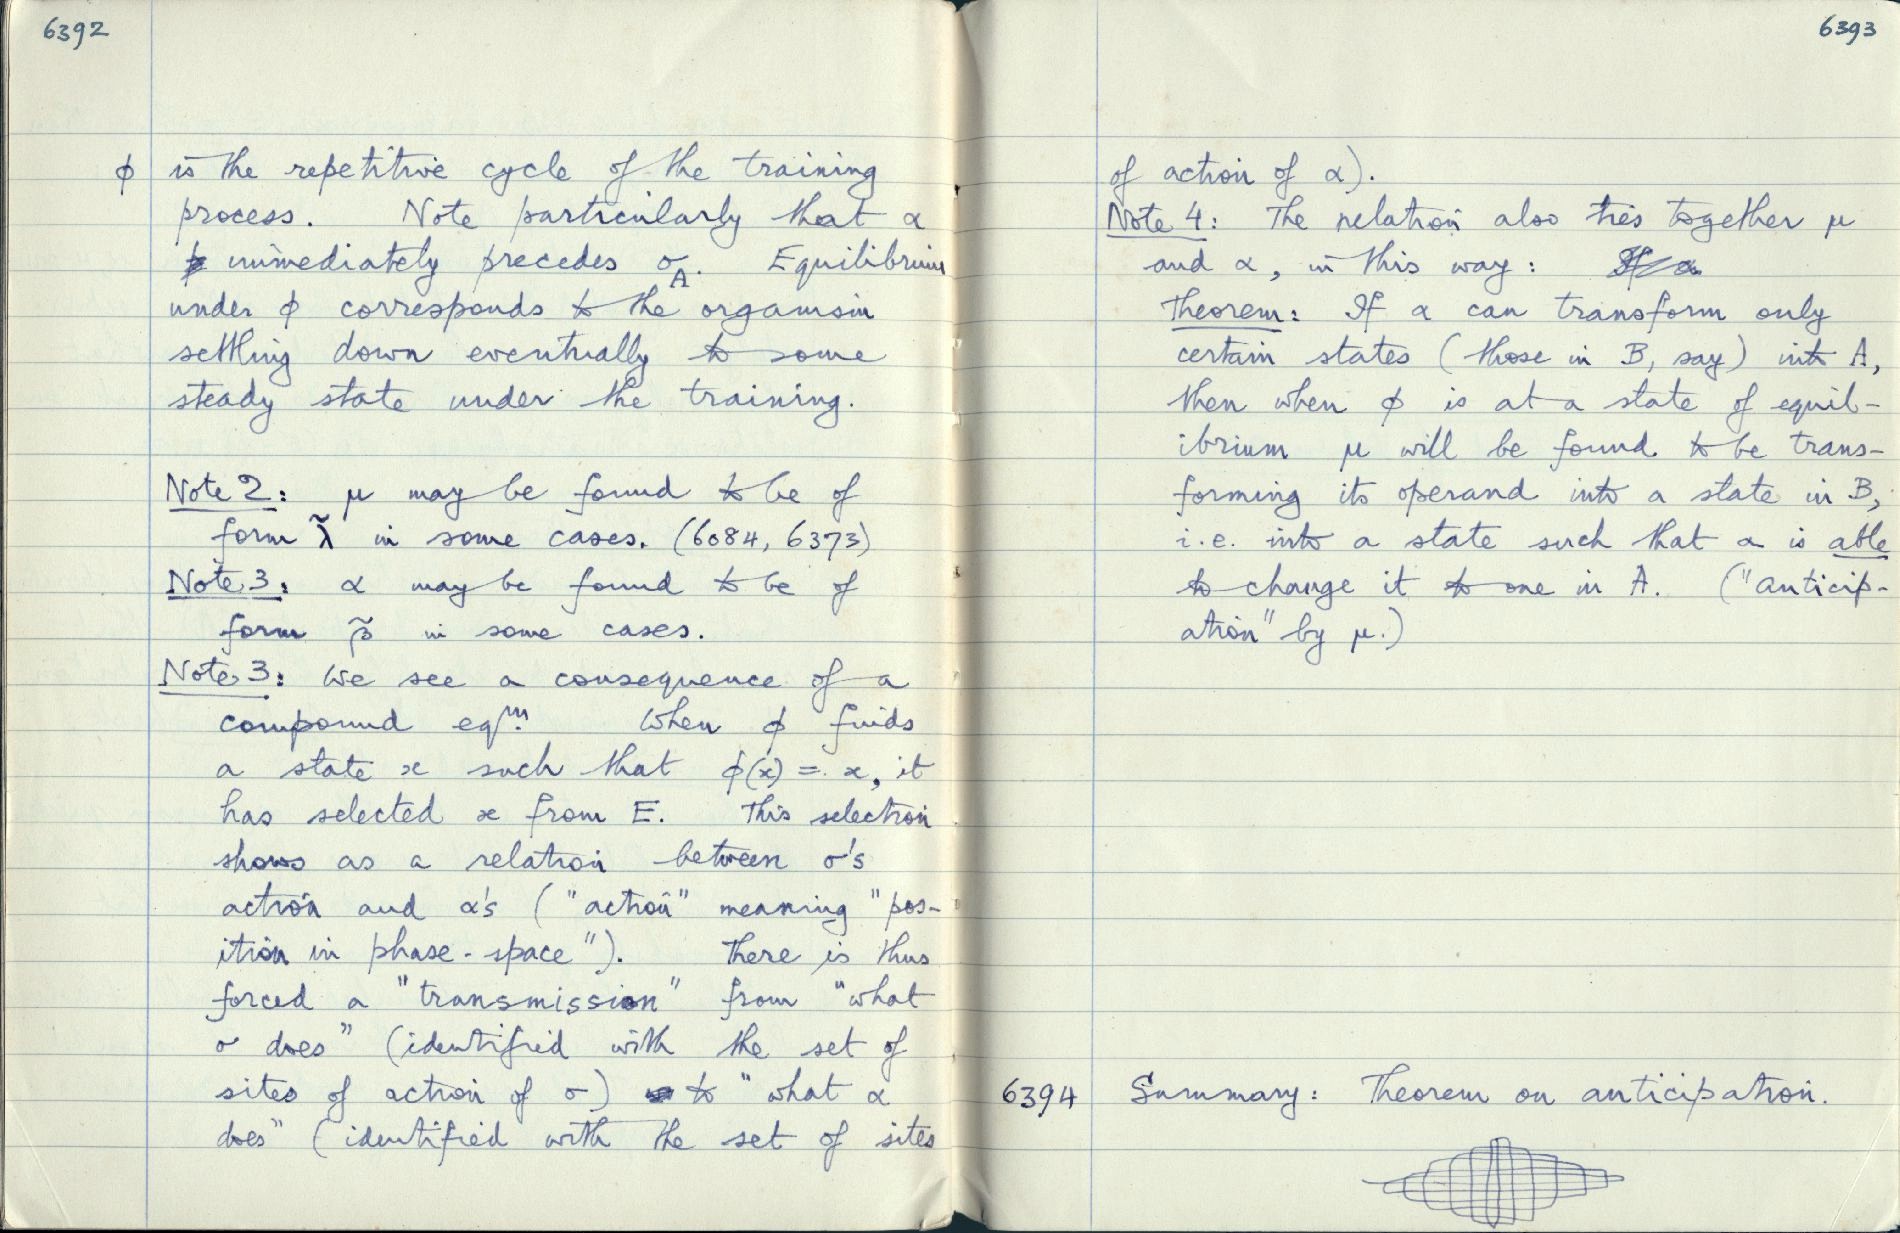 6392
ϕ is the repetitive cycle of the training
process. Note particularly that α
immediately precedes σA. Equilibrium
under ϕ corresponds to the organism
settling down eventually to some
steady state under the training.
Note 2: μ may be found to be of
form λ̃ in some cases. (6084, 6373)
Note 3: α may be found to be of
form β̃ in some cases.
Note 3: We see a consequence of a
compound eqm. When ϕ finds
a state x such that ϕ(x) = x, it
has selected x from E. This selection
shows as a relation between σ's
action and α's ("action" meaning "pos-
ition in phase-space"). There is thus
forced a "transmission" from "what
σ does" (identified with the set of
sites of action of σ) to "what α
does" (identified with the set of sites
6393
of action of α).
Note 4: The relation also ties together μ
and α, in this way:
Theorem: If α can transform only
certain states (those in B, say) into A,
then when ϕ is at a state of equil-
ibrium μ will be found to be trans-
forming its operand into a state in B,
i.e. into a state such that α is able
to change it to one in A. ("Anticip-
ation" by μ.)
6394 Summary: Theorem on anticipation.